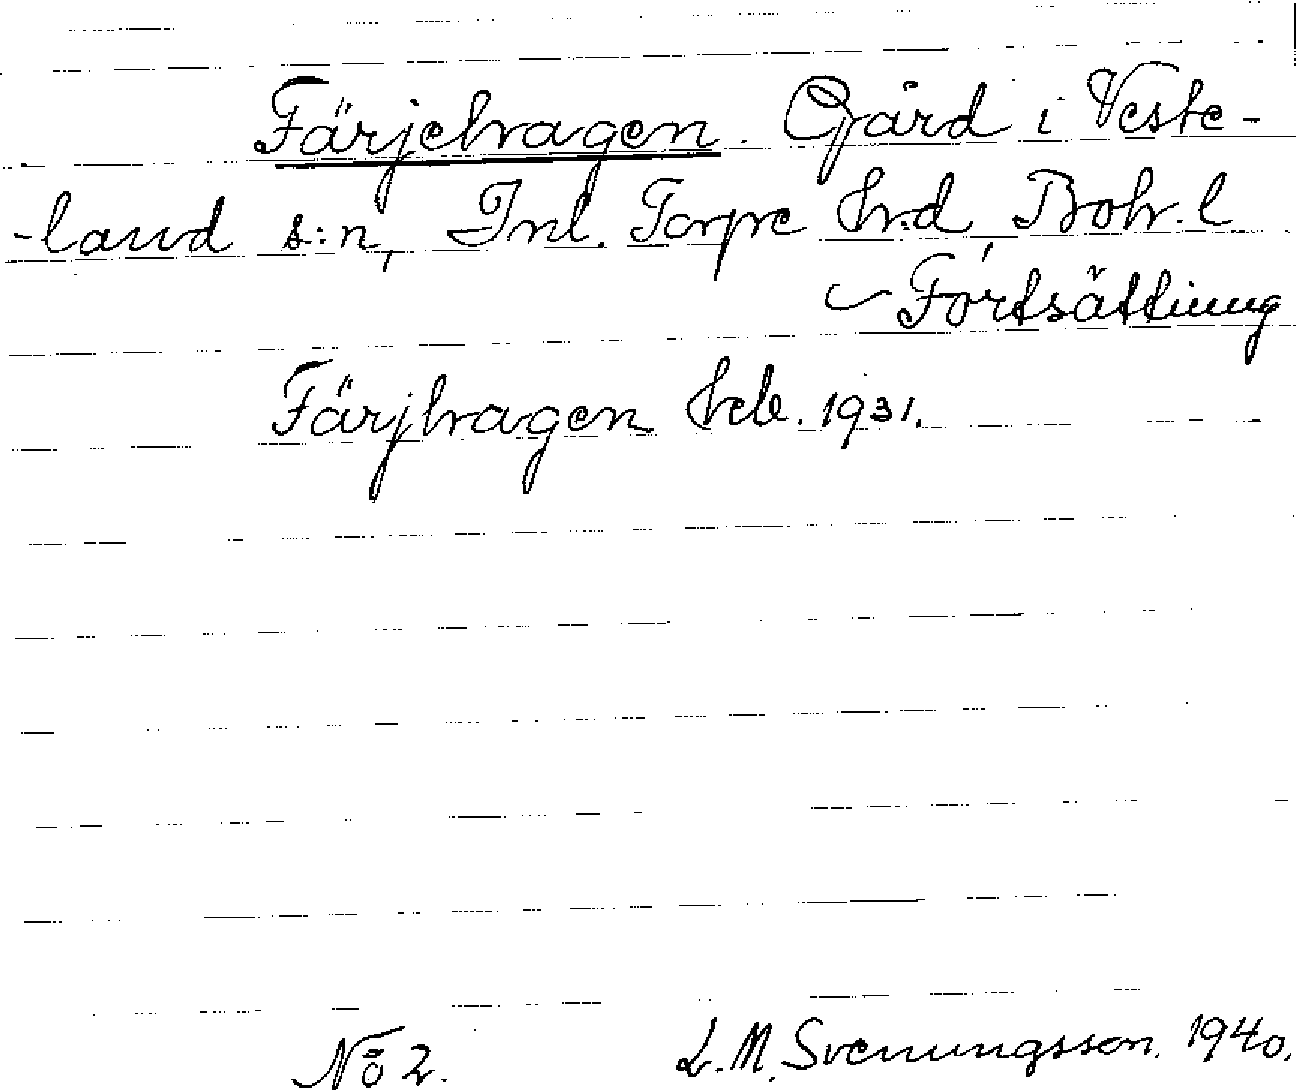 Färjehagen. Gård i Veste-
-land s:n, Inl. Torpe hrd, Boh. l
Fortsättning
Färjhagen Jrb. 1931.
No 2. L. M. Svenungsson. 1940.